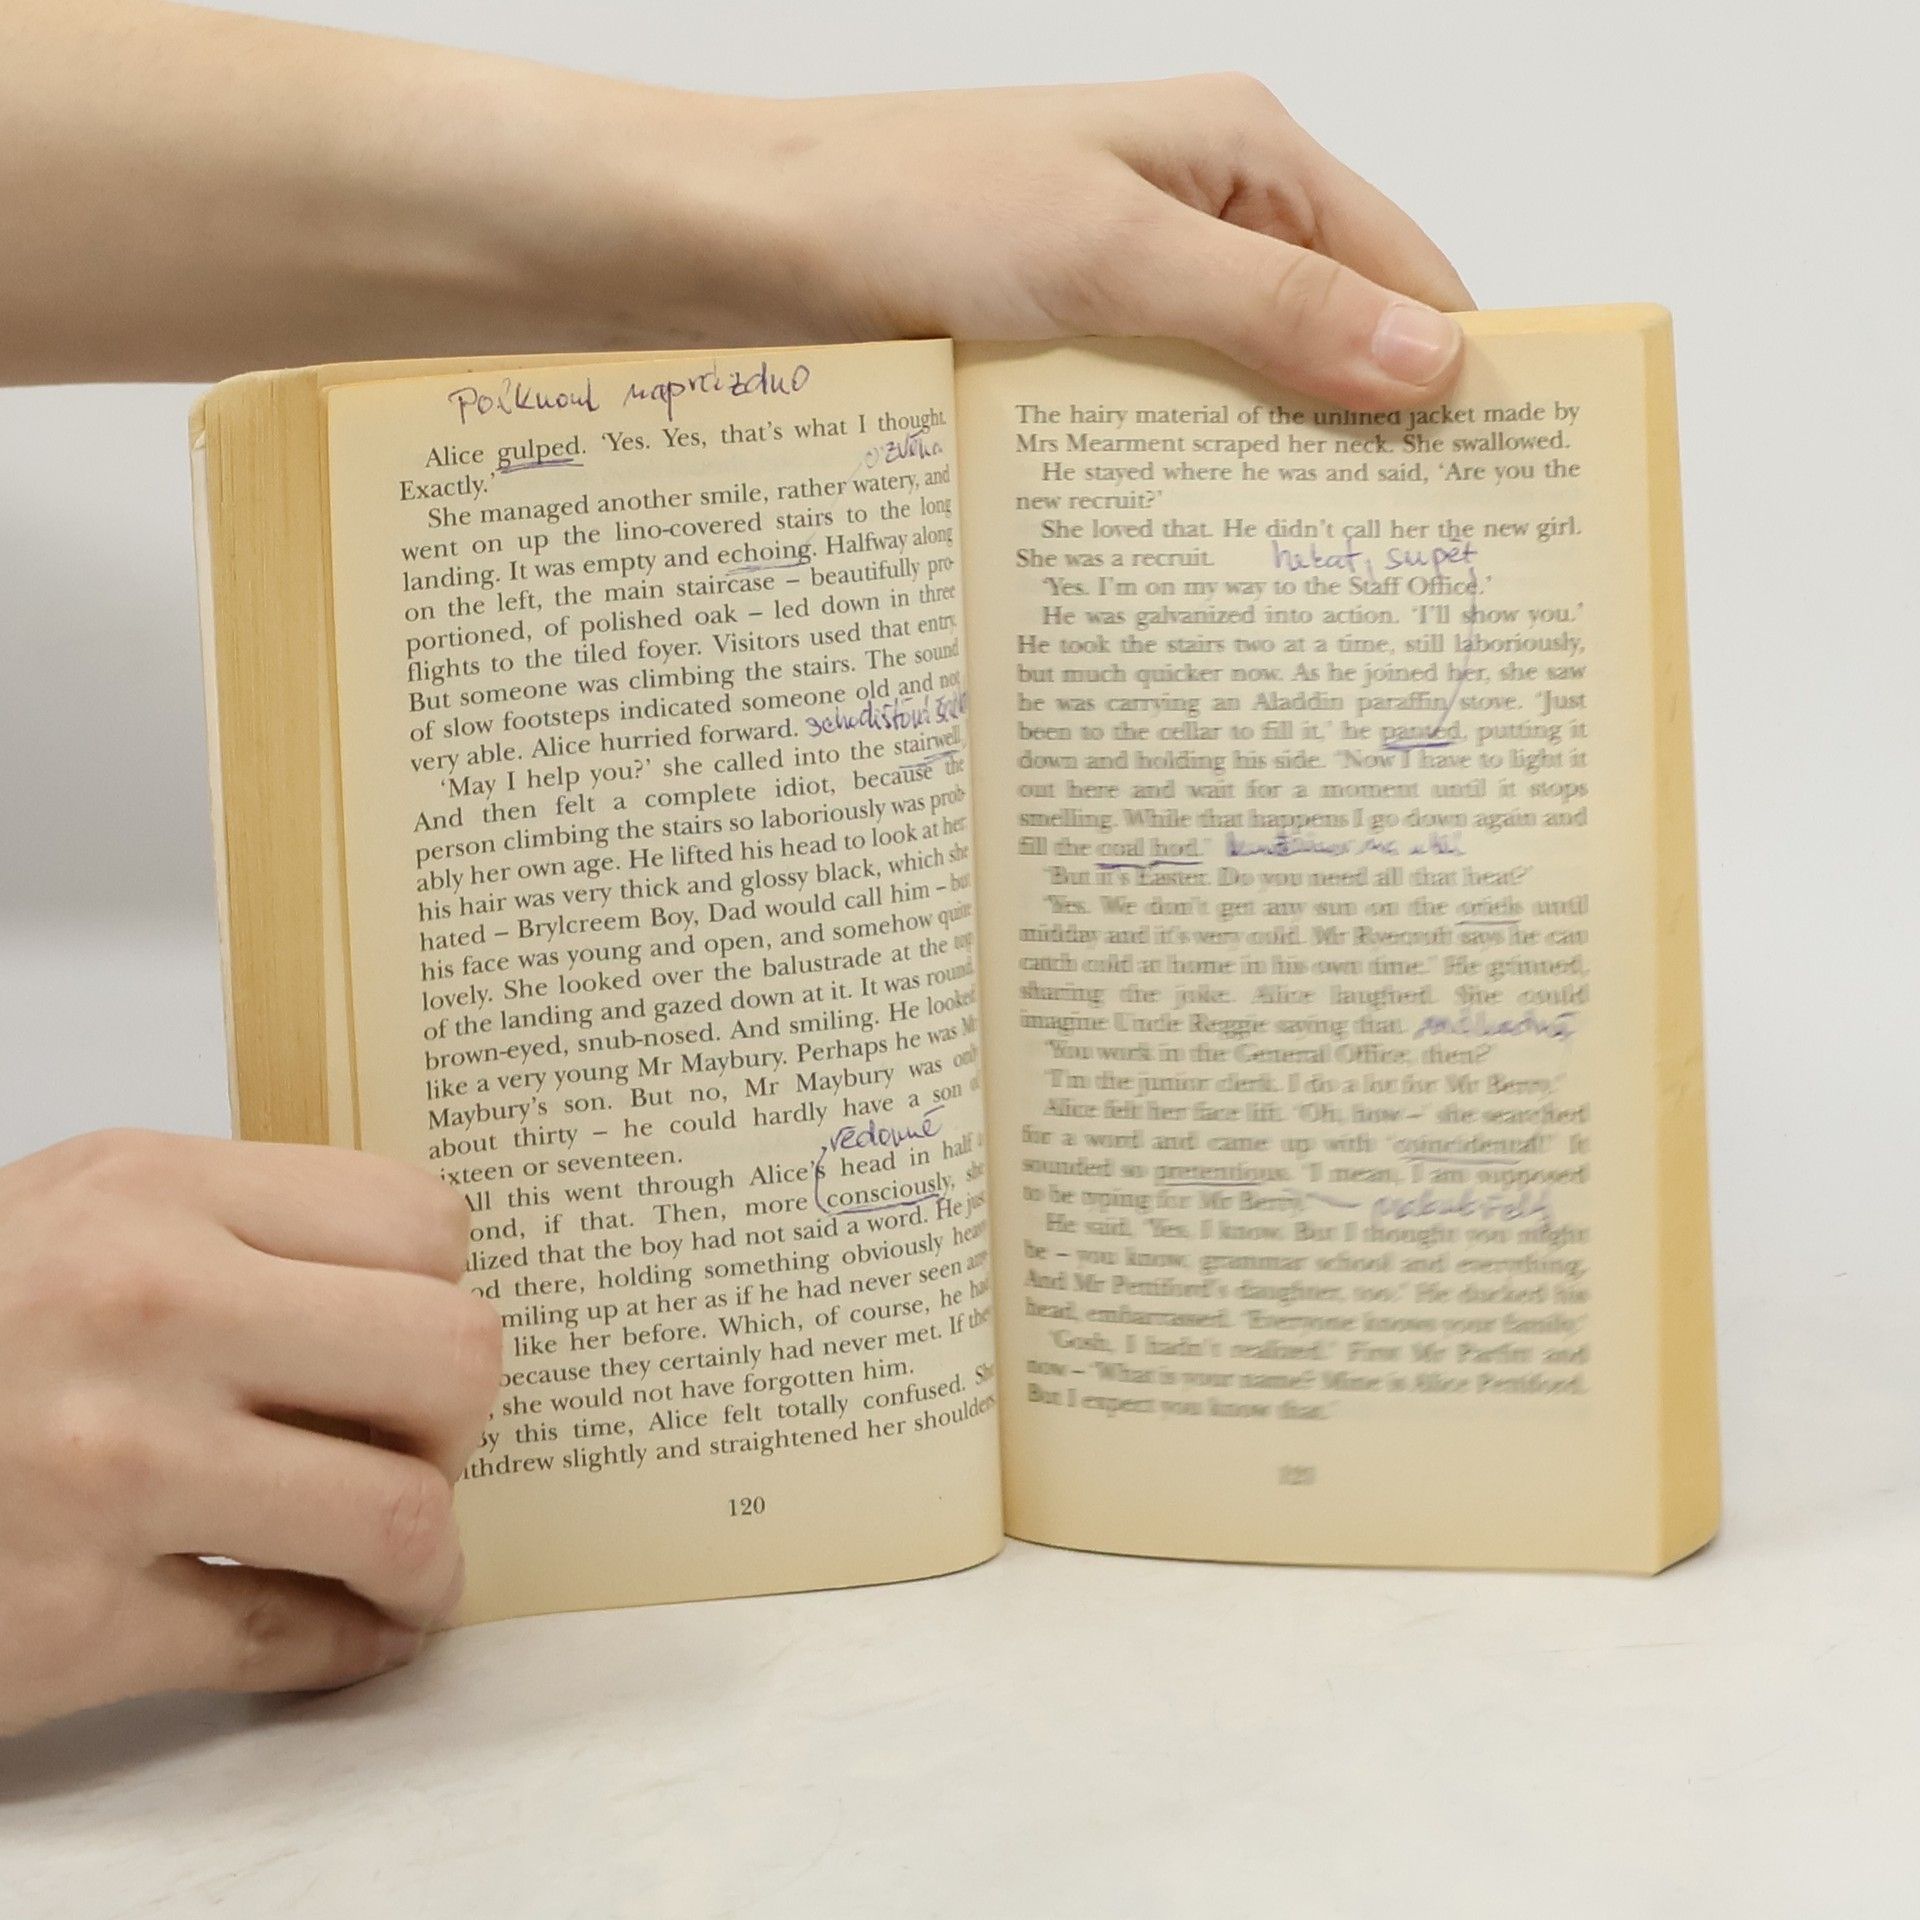 Polknout naprázdno
Alice gulped. ‘Yes. Yes, that’s what I thought.
Exactly.’
ozvěna
She managed another smile, rather watery, and
went on up the lino-covered stairs to the long
landing. It was empty and echoing. Halfway along
on the left, the main staircase – beautifully pro-
portioned, of polished oak – led down in three
flights to the tiled foyer. Visitors used that entry.
But someone was climbing the stairs. The sound
of slow footsteps indicated someone old and not
very able. Alice hurried forward.
‘May I help you?’ she called into the stairwell.
And then felt a complete idiot, because the
person climbing the stairs so laboriously was prob-
ably her own age. He lifted his head to look at her.
his hair was very thick and glossy black, which she
hated – Brylcreem Boy, Dad would call him – but
his face was young and open, and somehow quite
lovely. She looked over the balustrade at the top
of the landing and gazed down at it. It was round,
brown-eyed, snub-nosed. And smiling. He looked
like a very young Mr Maybury. Perhaps he was Mr
Maybury’s son. But no, Mr Maybury was only
about thirty – he could hardly have a son of
ixteen or seventeen.
vědomně
All this went through Alice’s head in half a
ond, if that. Then, more consciously, she
alized that the boy had not said a word. He just
od there, holding something obviously heav
miling up at her as if he had never seen any
like her before. Which, of course, he had
because they certainly had never met. If they
, she would not have forgotten him.
By this time, Alice felt totally confused. She
ithdrew slightly and straightened her shoulders.
120
The hairy material of the unlined jacket made by
Mrs Mearment scraped her neck. She swallowed.
He stayed where he was and said, ‘Are you the
new recruit?’
She loved that. He didn’t call her the new girl.
She was a recruit. hekat, supět
‘Yes. I’m on my way to the Staff Office.’
He was galvanized into action. ‘I’ll show you.’
He took the stairs two at a time, still laboriously,
but much quicker now. As he joined her, she saw
he was carrying an Aladdin paraffin stove. ‘Just
been to the cellar to fill it,’ he panted, putting it
down and holding his side. ‘Now I have to light it
out here and wait for a moment until it stops
smelling. While that happens I go down again and
fill the coal hod.’
‘But it’s Easter. Do you need all that heat?’
‘Yes. We don’t get any sun on the until
midday and it’s very cold. Mr says he can
catch cold at home in his own time.’ He grinned,
sharing the joke. Alice laughed. She could
imagine Uncle Reggie saying that.
‘You work in the General Office, then?’
‘I’m the junior clerk. I do a lot for Mr Berry.’
Alice felt her face lift. ‘Oh, how –’ she searched
for a word and came up with ‘coincidental!’ It
sounded so pretentious. ‘I mean, I am supposed
to be typing for Mr Berry.’
He said, ‘Yes, I know. But I thought you might
be – you know, grammar school and everything.
And Mr Pettiford’s daughter, too.’ He ducked his
head, embarrassed. ‘Everyone knows your family.’
‘Gosh, I hadn’t realized.’ First Mr and
now – ‘What is your name? Mine is Alice Pettiford.
But I expect you know that.’
121